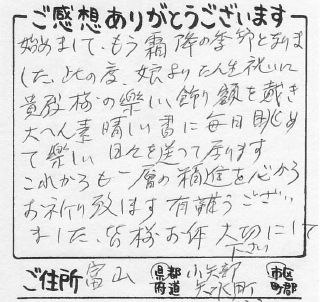 ご感想ありがとうございます
始めまして、もう霜降の季節となりま
した、此の度、娘よりたん生祝いに
貴殿様の楽しい飾り額を戴き
大へん素晴しい書に毎日眺め
て楽しい日々を送って居ります
これからも一層の精進を心から
お祈り致ます有難うござい
ました、皆様お体大切にして
下さい
ご住所 富山 県都府道 小矢部 市区町郡